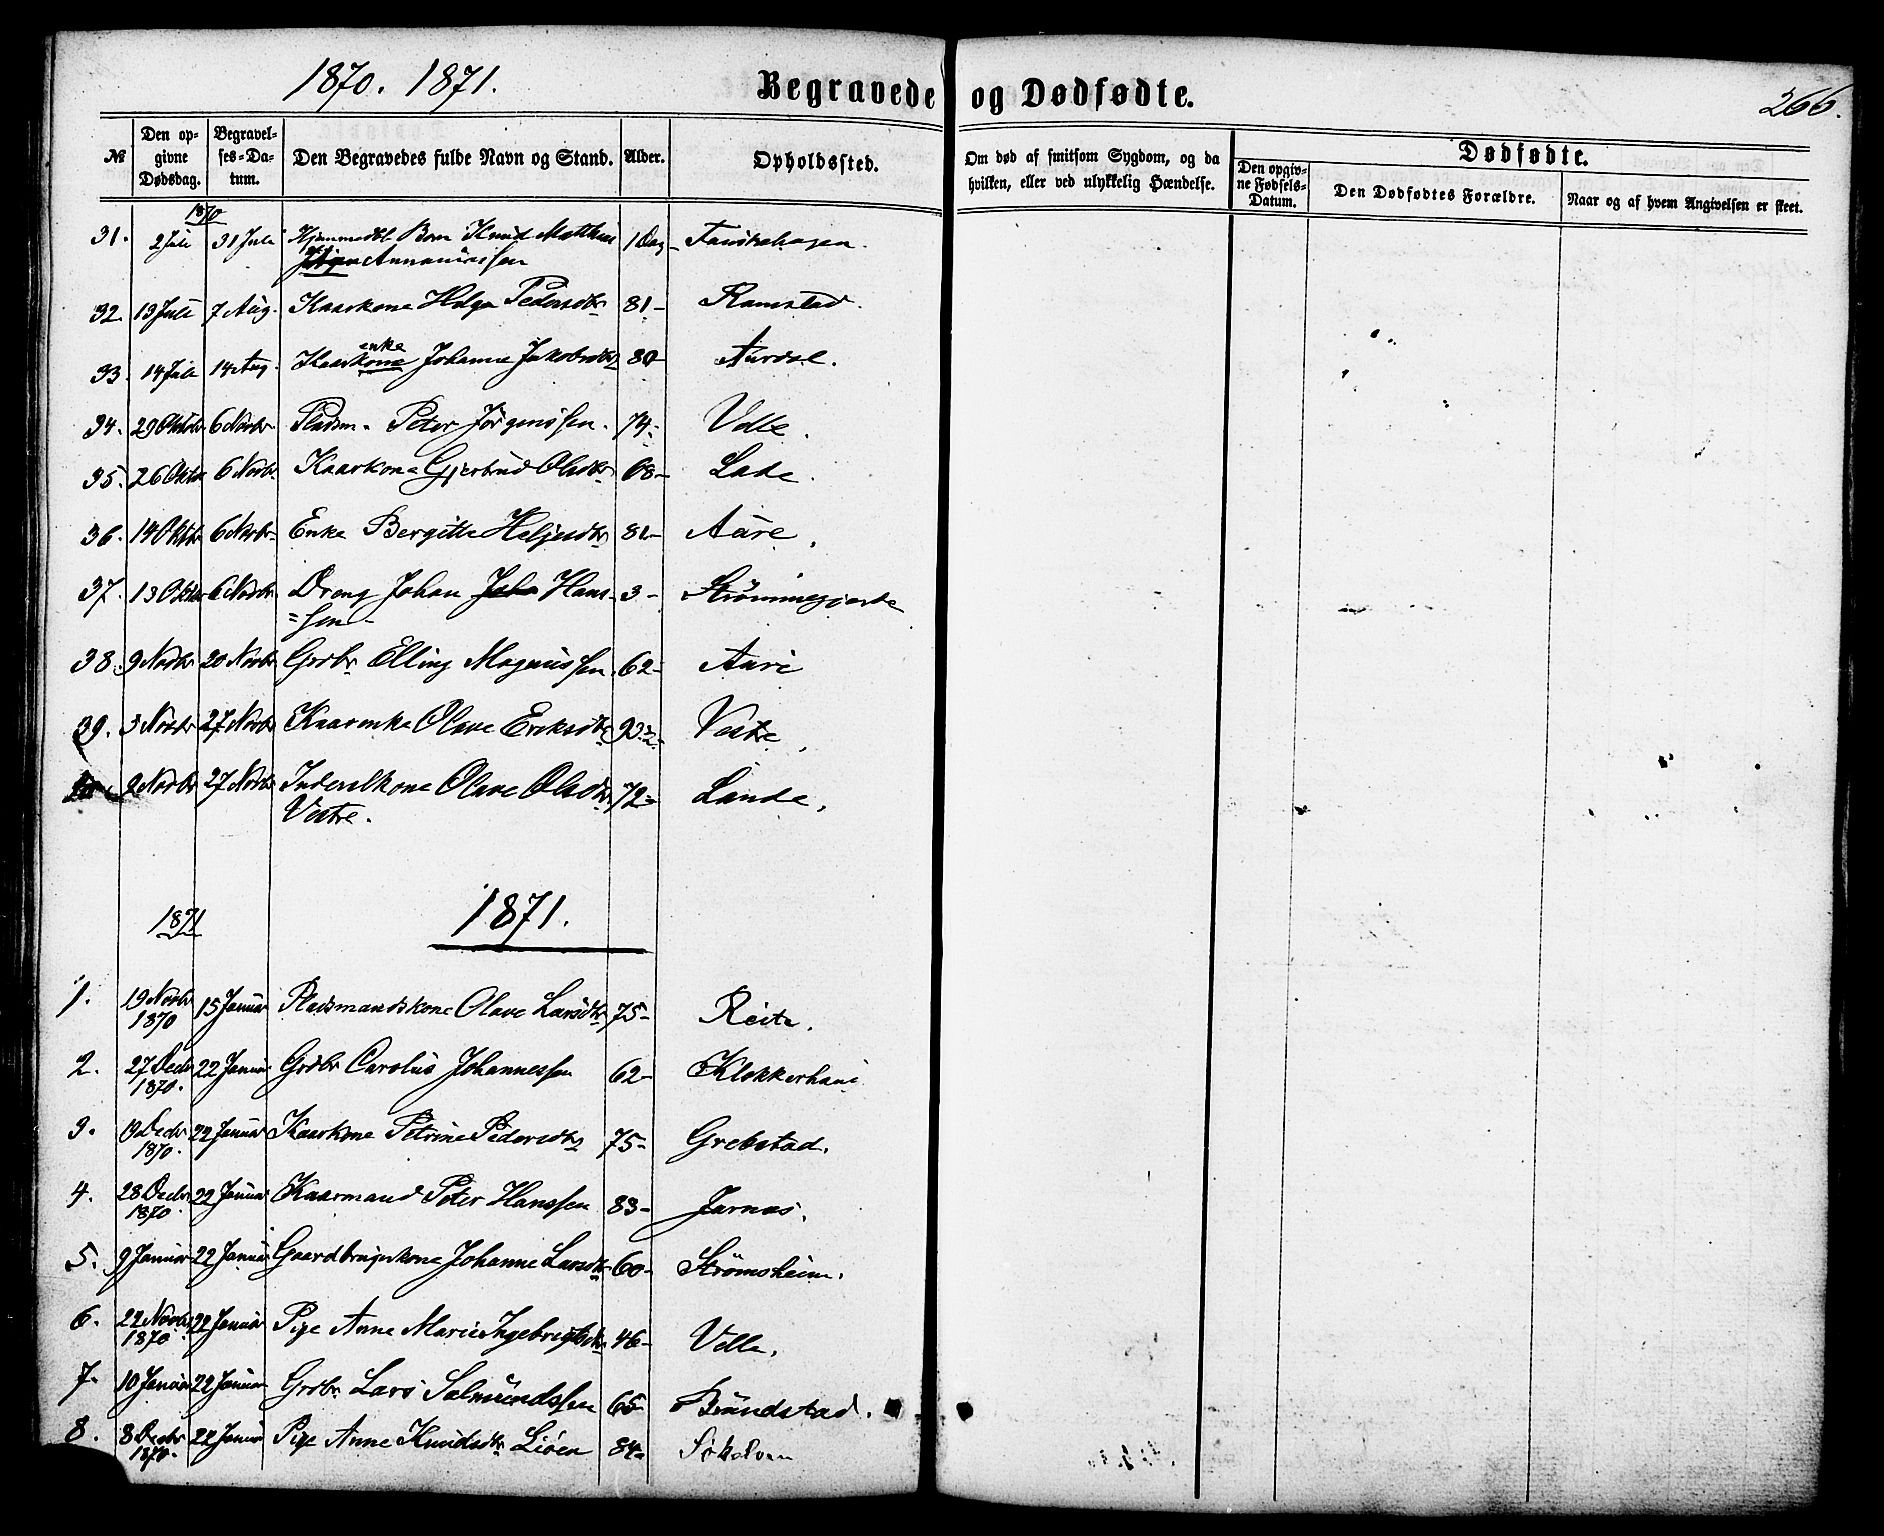 1870. 1871.
Begravede og Dødfødte.
266.
№
Den opgivne Dødsdag.
Begravelses-Datum.
Den Begravedes fulde Navn og Stand.
Alder.
Opholdssted.
Om død af smitsom Sygdom, og da hvilken, eller ved ulykkelig Hændelse.
Dødfødte.
Den opgivne Fødsels-Datum.
Den Dødfødtes Forældre.
Naar og af hvem Angivelsen er skeet.
1870
31. 2 Juli 31 Juli Hjemmedbt Barn Knud Matthias 1 Dag-
Annaniassen
32. 13 Juli 7 Aug. Kaarkone Helga Pedersdtr 81- Ramstad.
33. 14 Juli 14 Aug. Kaarkone enke Johanne Jakobsdtr 80- Aurdal.
34. 29 Oktbr 6 Novbr Pladsm. Peter Jørgenssen. 74- Velle.
35. 26 Oktbr 6 Novbr. Kaarkone Gjertrud Olsdtr 68- Lade.
36. 14 Oktbr 6 Novbr Enke Bergitte Heljesdtr 82- Aure.
37. 13 Oktbr 6 Novbr. Dreng Johan Joha Hans- 3- Strømmegjerde
=sen-
38. 9 Novbr 20 Novbr Grdbr Elling Magnussen. 62- Aure
39. 3 Novbr 27 Novbr Kaarenke Olave Eriksdtr 93½- Vestre,
40. 2 Novbr 27 Novbr Inderstkone Olave Olsdtr 72- Lande,
Vestre.
1871
1871.
1. 19 Novbr 15 Januar Pladsmandskone Olave Larsdtr 75- Reite.
1870
2. 27 Decbr 22 Januar Grdbr Carolus Johannessen 62- Klokkerhaug
1870.
3. 9 Decbr 22 Januar Kaarkone Petrine Pedersdtr 75- Grebstad.
1870.
4. 28 Decbr 22 Januar Kaarmand Peter Hanssen 83- Jarnæs.
1870.
5. 9 Januar 22 Januar Gaardbrugerkone Johanne Larsdtr 60- Strømsheim.
6. 22 Novbr 22 Januar Pige Anne Marie Ingebrigtsdtr 46- Velle.
1870.
7. 10 Januar 22 Januar Grdbr Lars Salmundssen 65- Brundstad.
8. 8 Decbr 22 Januar Pige Anne Knudsdtr Liøen 84- Søkelven
1870.